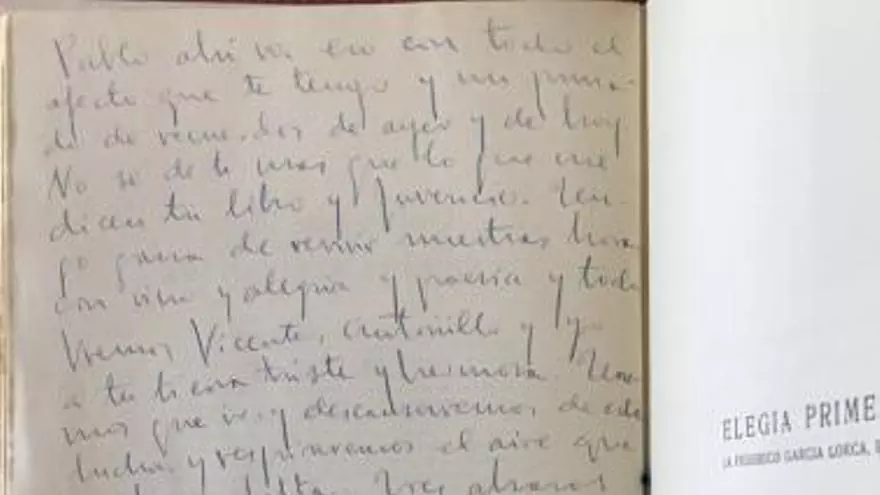 Pablo ahí va eso con todo el
afecto que te tengo y un puña-
do de recuerdos de ayer y de hoy
No se de ti mas que lo que me
dicen tu libro y Juvencio. Ten-
go gana de reunir nuestras horas
con vino y alegria y poesia y todo
Iremos Vicente, y yo
a tu tierra triste y hermosa. Tene-
mos que ir y descansaremos de esta
lucha y respiraremos el aire que
falta. Tres abrazos
ELEGIA PRIME
(A FEDERICO GARCIA LORCA,